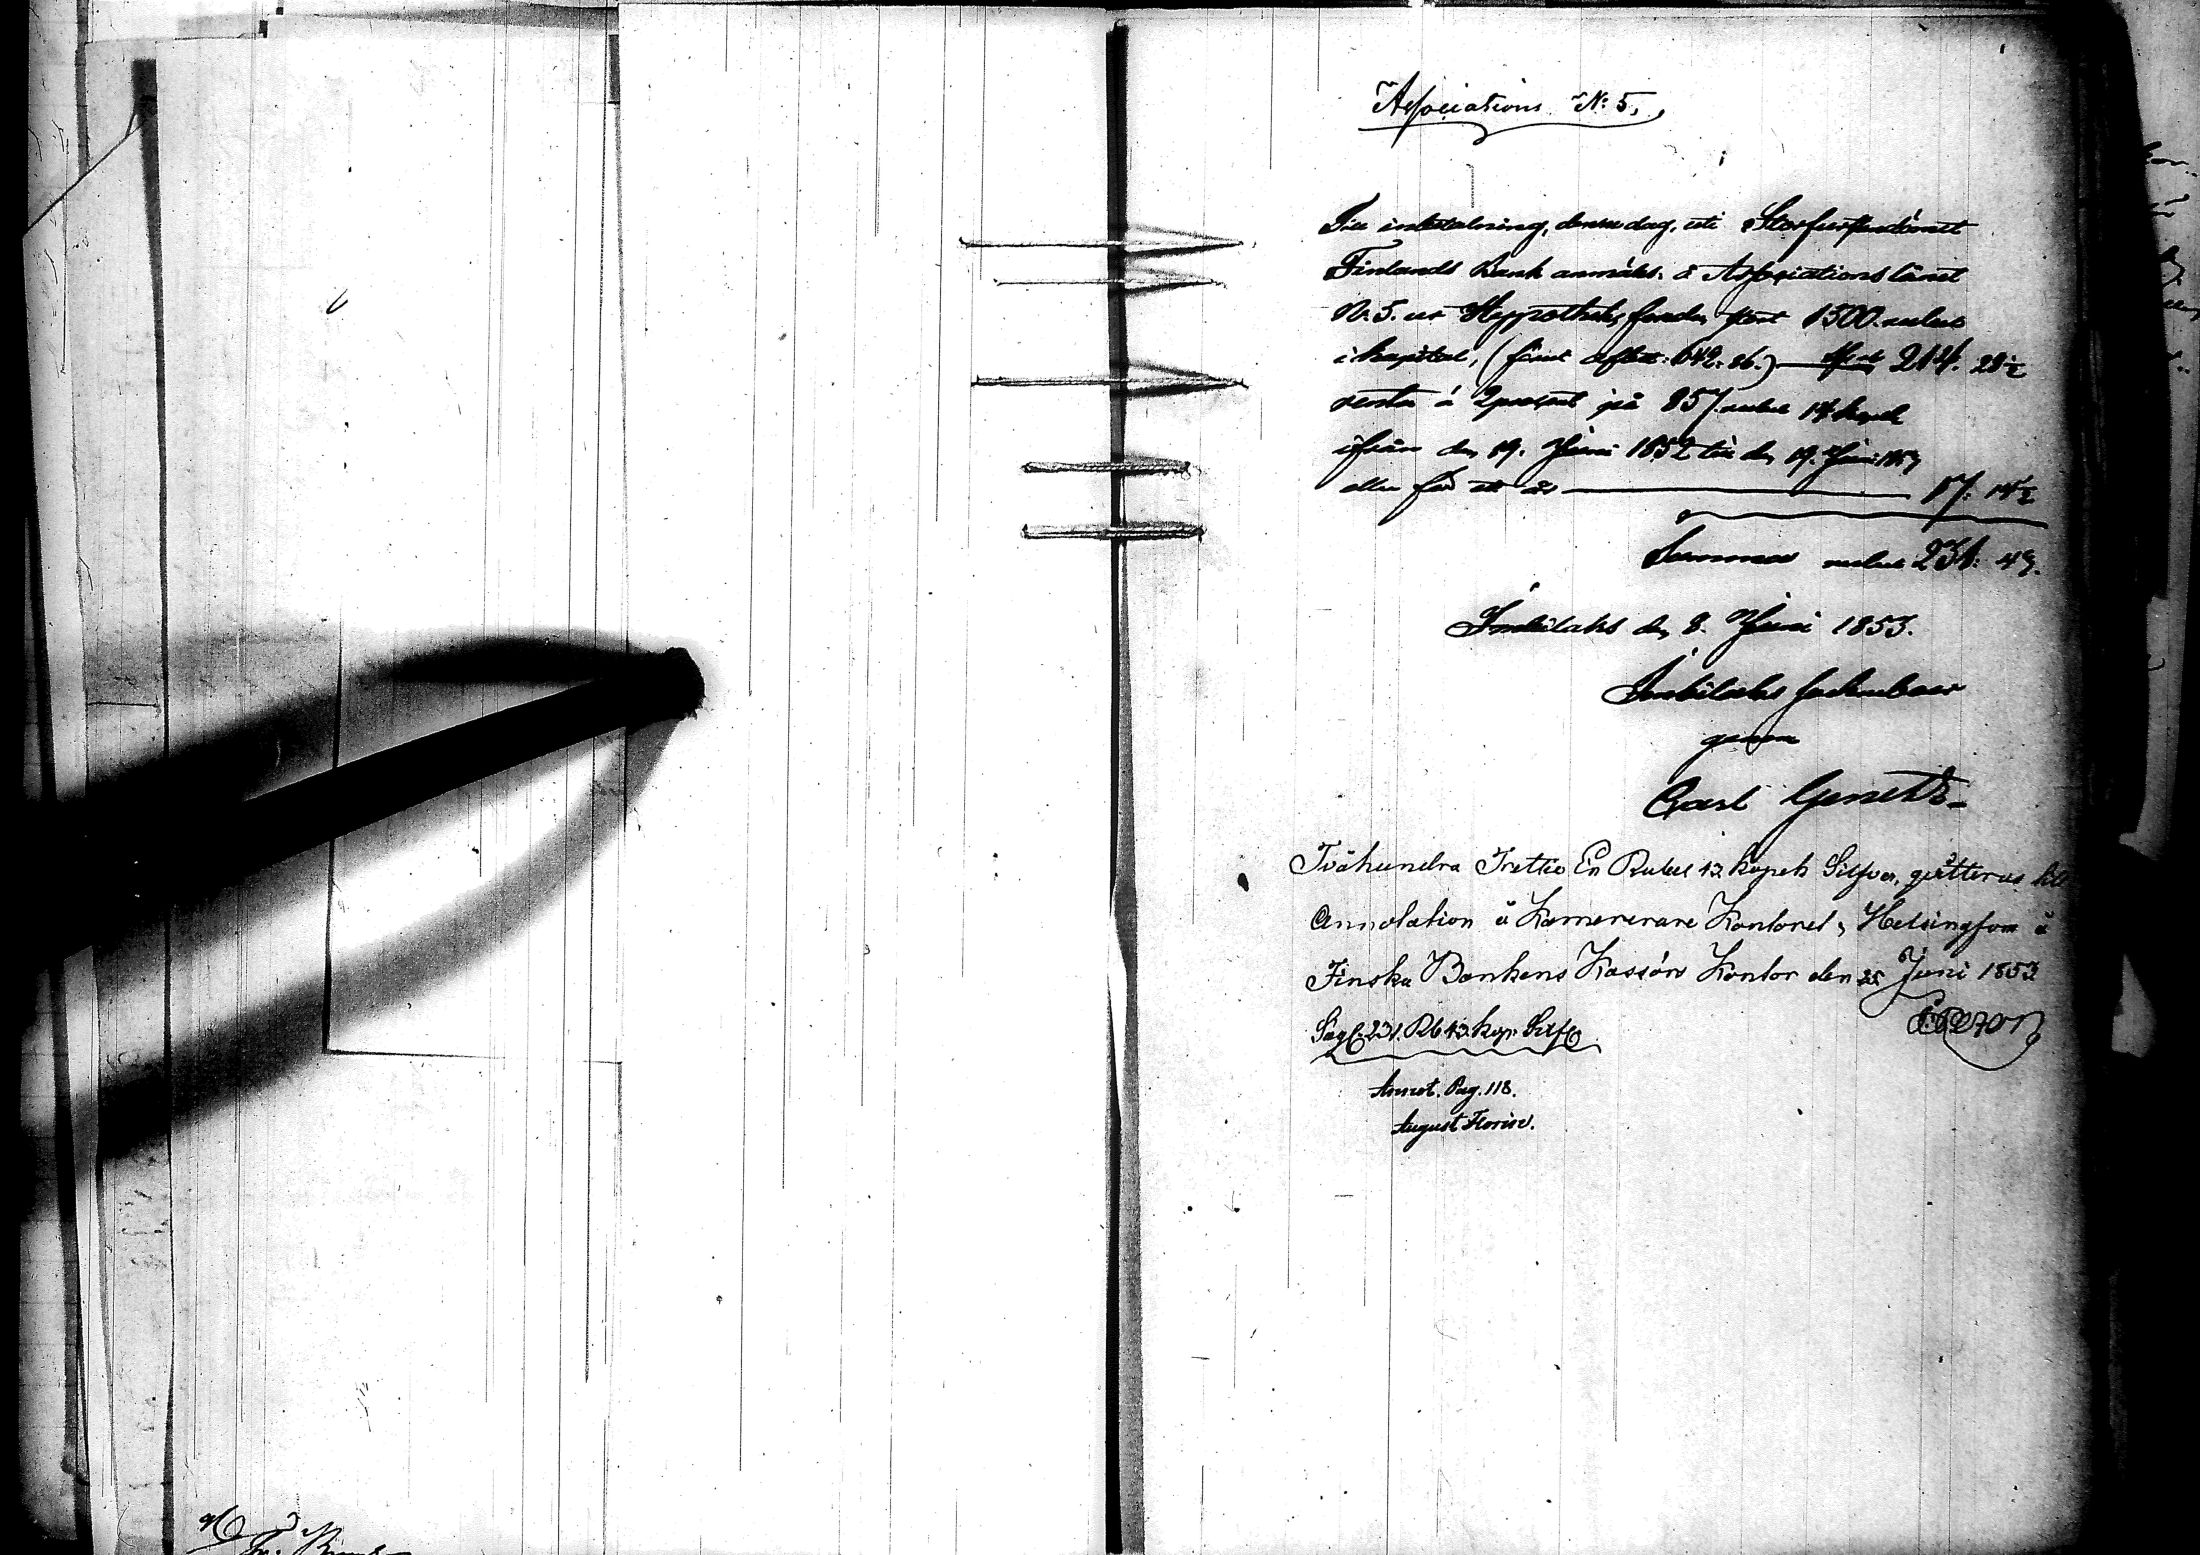 Associations N:o 5,
Till inbetalning, denna dag, uti Storfurstendömet
Finlands Bank anmäls å Associations lånet
N:o 5. ur Hypotheks fonden stort 1500 rubel
i kapital, (förut afbet: 642: 86.) 214. 28½
renta á 2 procent på 857 rubel 14 kopek
ifrån den 19. Juni 1852 till den 19. Juni 1853
eller för ett år 17: 14½
Summa rubel 231: 43.
Imbilaks den 8. Juni 1853.
Imbilaks sockneboer
genom
Carl Genetz
Tvåhundra Trettio En Rubel 43 kopek Silfver, qvitteras till
Annotation å Kamererare Kontoret, Helsingfors å
Finska Bankens Kassörs Kontor den 25 Juni 1853
Säg 231. Rb 43. kop. Silf
Annot. Pag. 118.
August Florin.